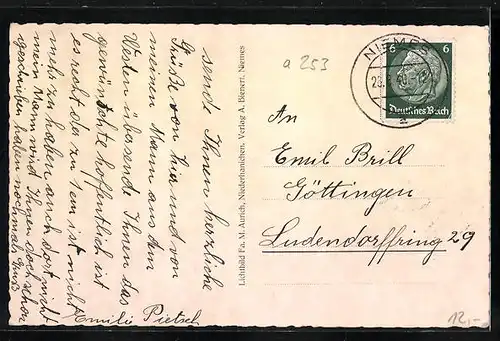 sende Ihnen herzliche
Grüße von hier und von
meinen Mann aus dem
Westen übersende Ihnen das
gewünschte hoffentlich ist
es recht das zu sein ist nicht
mehr zu haben auch dort nicht
mein Mann wird Ihnen doch schon
geschrieben haben nochmals Gruß
Emilie Pietsch
Lichtbild Fa. M. Aurich, Niederhanichen. Verlag A. Bienert, Niemes
a 253
NIEMES
6 6
Deutsches Reich
An
Emil Brill
Göttingen
Ludendorffring 29
12,-